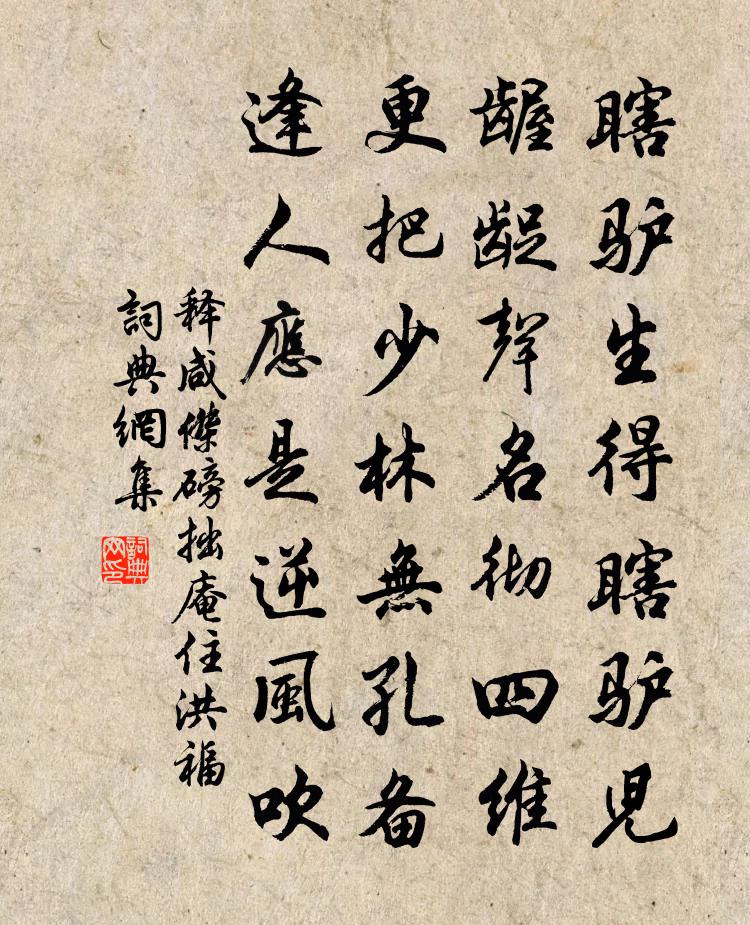 瞎驴生得瞎驴兒
齷齪聲名彻四維
更把少林無孔备
逢人應是逆風吹
释咸傑磅拙庵住洪福
詞典網集
詞典
网印